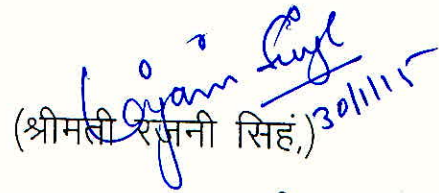 Rajani Singh
30/1/15
(श्रीमती रजनी सिहं,)